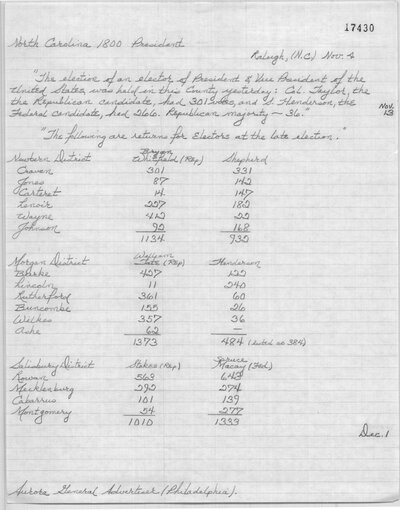 17430
North Carolina 1800 President
Raleigh, (N.C.) Nov. 4
"The election of an elector of President & Vice President of the
United States, was held in this County yesterday: Col. Taylor, the
the Republican candidate, had 301 votes, and S. Henderson, the
Federal candidate, had 266. Republican majority — 36."
Nov. 13
"The following are returns for Electors at the late election."
Bryan
Newbern District Whitfield (Rep) Shepherd
Craven 301 331
Jones 87 142
Carteret 14 147
Lenoir 227 182
Wayne 412 22
Johnson 92 168
1134 932
William
Morgan District Tate (Rep) Henderson
Burke 427 122
Lincoln 11 240
Rutherford 361 60
Buncombe 155 26
Wilkes 357 36
Ashe 62 —
1373 484 (listed as 384)
Spruce
Salisbury District Stokes (Rep) Macay (Fed.)
Rowan 563 643
Mecklenburg 292 274
Cabarrus 101 139
Montgomery 54 277
1010 1333
Dec. 1
Aurora General Advertiser (Philadelphia).